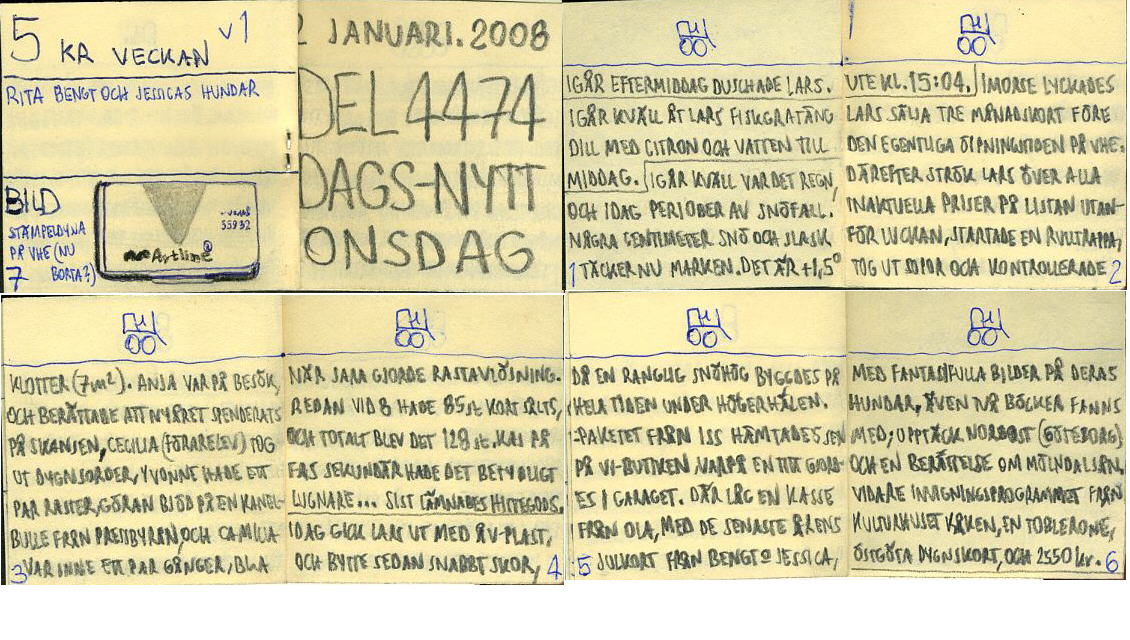 5 KR VECKAN v1
RITA BENGT OCH JESSICAS HUNDAR
BILD
STÄMPELDYNA
PÅ VHE (NU
7 BORTA?)
Artline
55932
2 JANUARI. 2008
DEL 4474
DAGS-NYTT
ONSDAG
IGÅR EFTERMIDDAG DUSCHADE LARS.
IGÅR KVÄLL ÅT LARS FISKGRATÄNG
DILL MED CITRON OCH VATTEN TILL
MIDDAG. IGÅR KVÄLL VAR DET REGN,
OCH IDAG PERIODER AV SNÖFALL.
NÅGRA CENTIMETER SNÖ OCH SLASK
1 TÄCKER NU MARKEN. DET ÄR +1,5°
UTE KL. 15:04. IMORSE LYCKADES
LARS SÄLJA TRE MÅNADSKORT FÖRE
DEN EGENTLIGA ÖPPNINGSTIDEN PÅ VHE.
DÄREFTER STRÖK LARS ÖVER ALLA
INAKTUELLA PRISER PÅ LISTAN UTAN-
FÖR LUCKAN, STARTADE EN RULLTRAPPA,
TOG UT SOPOR OCH KONTROLLERADE 2
KLOTTER (7m²). ANJA VAR PÅ BESÖK,
OCH BERÄTTADE ATT NYÅRET SPENDERATS
PÅ SKANSEN, CECILIA (FÖRARELEV) TOG
UT DYGNSORDER, YVONNE HADE ETT
PAR RASTER, GÖRAN BJÖD PÅ EN KANEL-
BULLE FRÅN PRESSBYRÅN, OCH CAMILLA
3 VAR INNE ETT PAR GÅNGER, BLA
NÄR SARA GJORDE RASTAVLÖSNING.
REDAN VID 8 HADE 85 st KORT SÅLTS,
OCH TOTALT BLEV DET 128 st. KAJ PÅ
FAS SEKUNDÄR HADE DET BETYDLIGT
LUGNARE... SIST LÄMNADES HITTEGODS.
IDAG GICK LARS UT MED ÅV-PLAST,
OCH BYTTE SEDAN SNABBT SKOR, 4
DÅ EN RANGLIG SNÖHÖG BYGGDES PÅ
HELA TIDEN UNDER HÖGERHÄLEN.
PAKETET FRÅN ISS HÄMTADES SEN
PÅ VI-BUTIKEN VARPÅ EN TITT GJORD-
ES I GARAGET. DÄR LÅG EN KASSE
FRÅN OLA, MED DE SENASTE ÅRENS
5 JULKORT FRÅN BENGT o JESSICA,
MED FANTASIFULLA BILDER PÅ DERAS
HUNDAR, ÄVEN TVÅ BÖCKER FANNS
MED; UPPTÄCK NORDOST (GÖTEBORG)
OCH EN BERÄTTELSE OM MÖLNDALSÅN,
VIDARE INVIGNINGSPROGRAMMET FRÅN
KULTURHUSET KÅKEN, EN TOBLERONE,
ÖSTGÖTA DYGNSKORT, OCH 2550 kr. 6